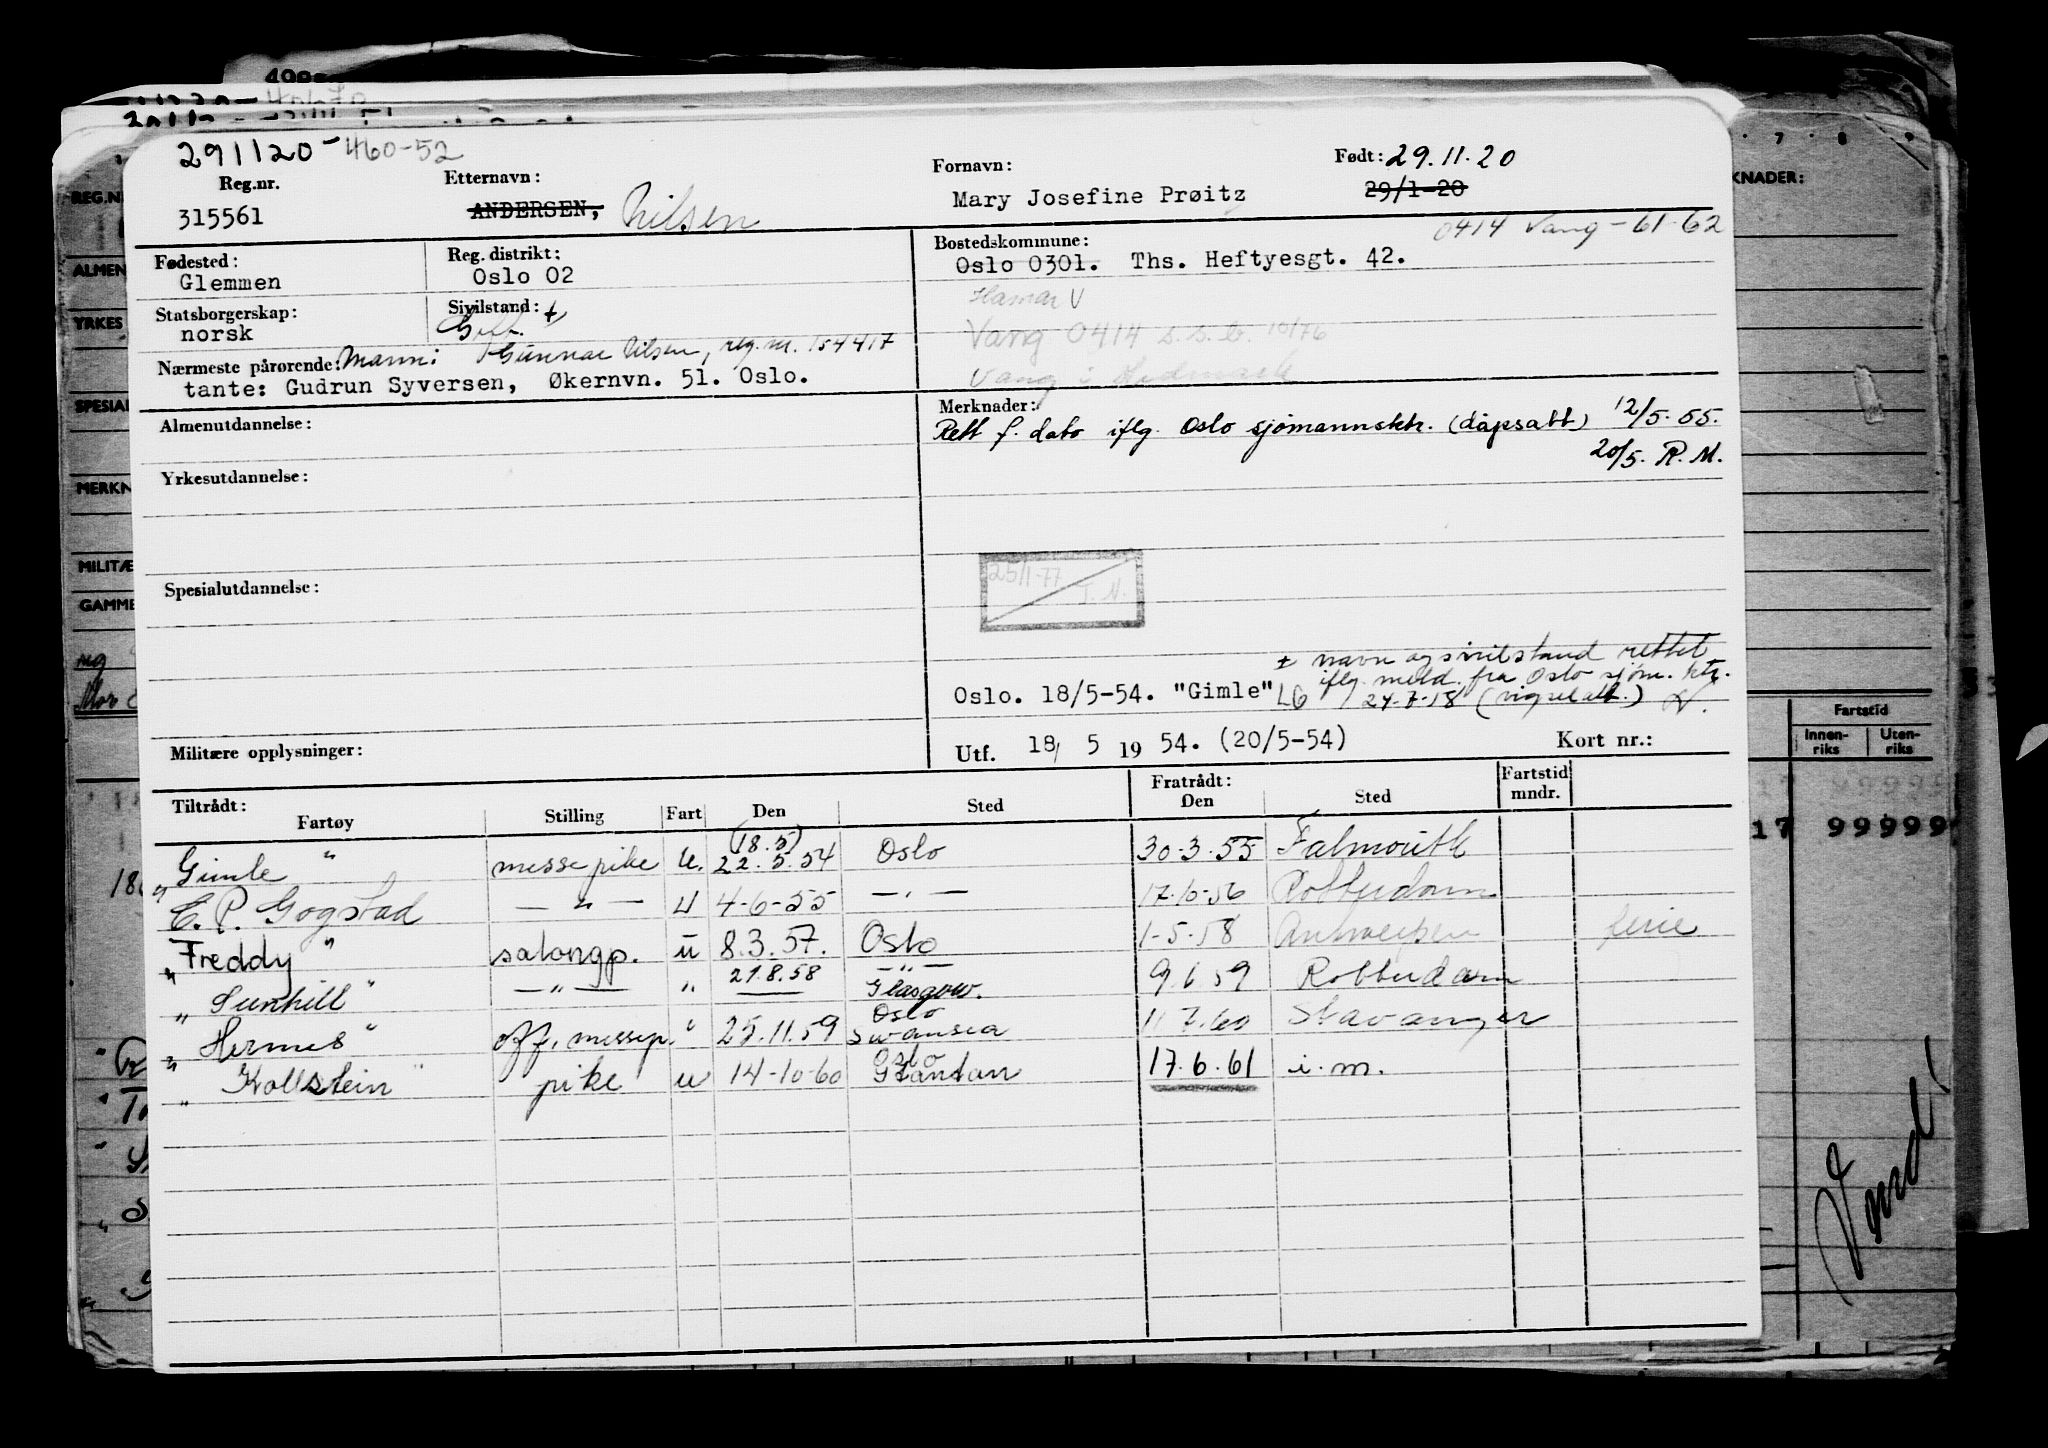 291120-460-52
Reg.nr.
315561
Etternavn:
ANDERSEN, Nilsen
Fornavn:
Mary Josefine Prøitz
Født: 29.11.20
29/1-20
Fødested:
Glemmen
Reg. distrikt:
Oslo 02
Bostedskommune:
0414 Vang - 61-62
Oslo 0301. Ths. Heftyesgt. 42.
Hamar V
Vang 0414 s.s.b. 10/76
Vang i Hedmark
Statsborgerskap:
norsk
Sivilstand: ±
Gift.
Nærmeste pårørende: Mann: Gunnar Nilsen, reg.nr. 154417
tante: Gudrun Syversen, Økernvn. 51. Oslo.
Almenutdannelse:
Yrkesutdannelse:
Spesialutdannelse:
Militære opplysninger:
Merknader:
Rett f. dato iflg. Oslo sjømannsktr. (dåpsatt) 12/5-55.
20/5. R.M.
25/1-77
T.N.
± navn og sivilstand rettet
iflg. meld. fra Oslo sjøm. ktr.
Oslo. 18/5-54. "Gimle" LG 24-7-58 (vigselatt.)
Utf. 18/ 5 19 54. (20/5-54)
Kort nr.:
Tiltrådt:
Fartøy
Stilling
Fart
Den
Sted
Fratrådt:
Den
Sted
Fartstid
mndr.
Gimle " messepike u. (18.5) 22.5.54 Oslo 30-3-55 Falmouth
" E. P. Gogstad — " — u 4-6-55 — " — 17-10-56 Rotterdam
Freddy " salongp. u 8.3.57. Oslo 1-5-58 Antwerpen ferie
" Sunhill " — " — " 21.8.58 — " — Glasgow. 9.6.59 Rotterdam
" Hermes " off. messep. " 25.11.59 Oslo Swansea 11.7.60 Stavanger
" Kollstein " pike u 14-10-60 Oslo 17.6.61 i.m.
REG.N
ALMEN
YRKES
SPESIAL
MERKN
MILITÆ
GAMME
KNADER:
7 8 9
Fartstid
Innen-
riks
Uten-
riks
17 99999